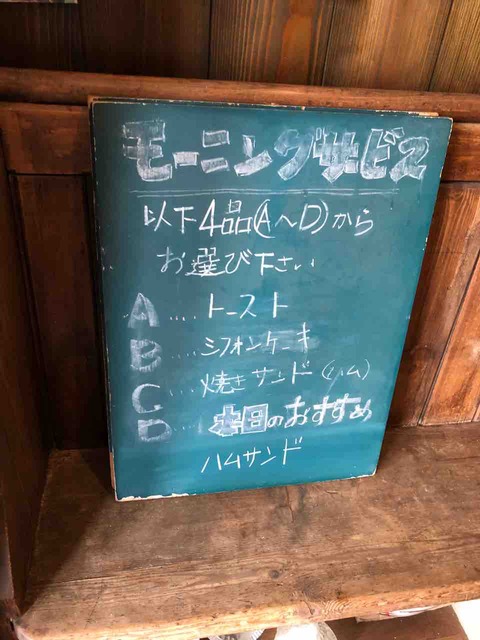 モーニングサービス
以下4品(A～D)から
お選び下さい
A....トースト
B....シフォンケーキ
C....焼きサンド(ハム)
D....本日のおすすめ
ハムサンド